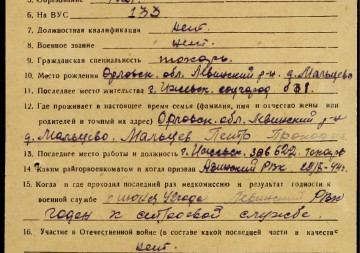 6. На ВУС 133
7. Должностная квалификация нет.
8. Военное звание нет.
9. Гражданская специальность токарь.
10. Место рождения Орловск. обл. Ливинский р-н д. Мальцево
11. Последнее место жительства г. Ижевск. соцгород
12. Где проживает в настоящее время семья (фамилия, имя и отчество жены или
родителей и точный их адрес) Орловск. обл. Ливинский р-н
д. Мальцево. Мальцев Петр
13. Последнее место работы и должность г. Ижевск. зав 622. токарь
14. Каким райгорвоенкоматом и когда призван РВК
15. Когда и где проходил последний раз медкомиссию и результат годности к
военной службе РВК
годен к строевой службе.
16. Участие в Отечественной войне (в составе какой последней части и в качестве
нет.